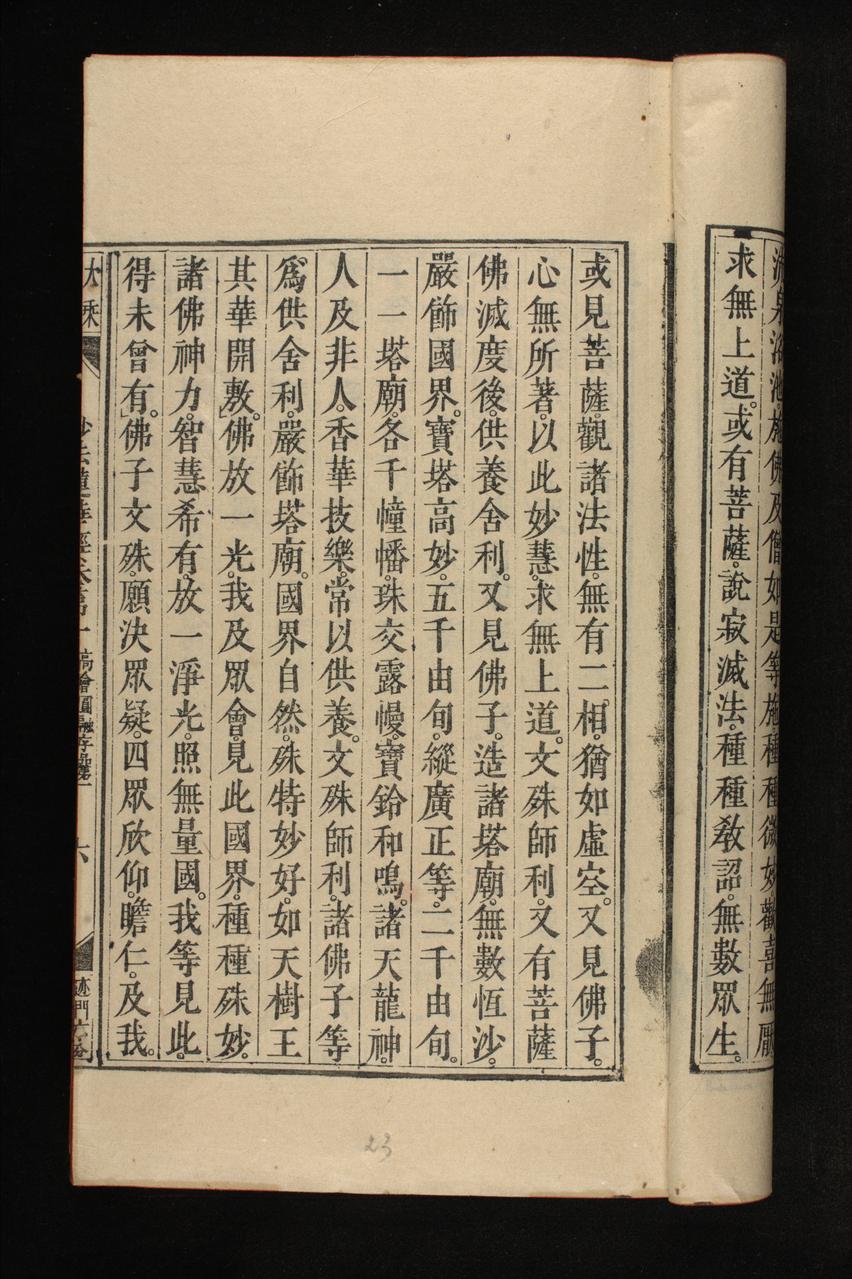 流泉浴池施佛及僧如是等施種種微妙歡喜無厭
求無上道。或有菩薩。說寂滅法。種種敎詔。無數眾生。
或見菩薩。觀諸法性。無有二相。猶如虛空。又見佛子。
心無所著。以此妙慧。求無上道。文殊師利。又有菩薩
佛滅度後。供養舍利。又見佛子。造諸塔廟。無數恆沙。
嚴飾國界。寶塔高妙。五千由旬。縱廣正等。二千由旬。
一一塔廟。各千幢幡。珠交露幔。寶鈴和鳴。諸天龍神。
人及非人。香華技樂。常以供養。文殊師利。諸佛子等
爲供舍利。嚴飾塔廟。國界自然。殊特妙好。如天樹王
其華開敷。」佛放一光。我及眾會。見此國界。種種殊妙。
諸佛神力。智慧希有。放一淨光。照無量國。我等見此。
得未曾有。」佛子文殊。願決眾疑。四眾欣仰。瞻仁。及我。
大乘
妙法蓮華經卷第一
六
迹門六
23